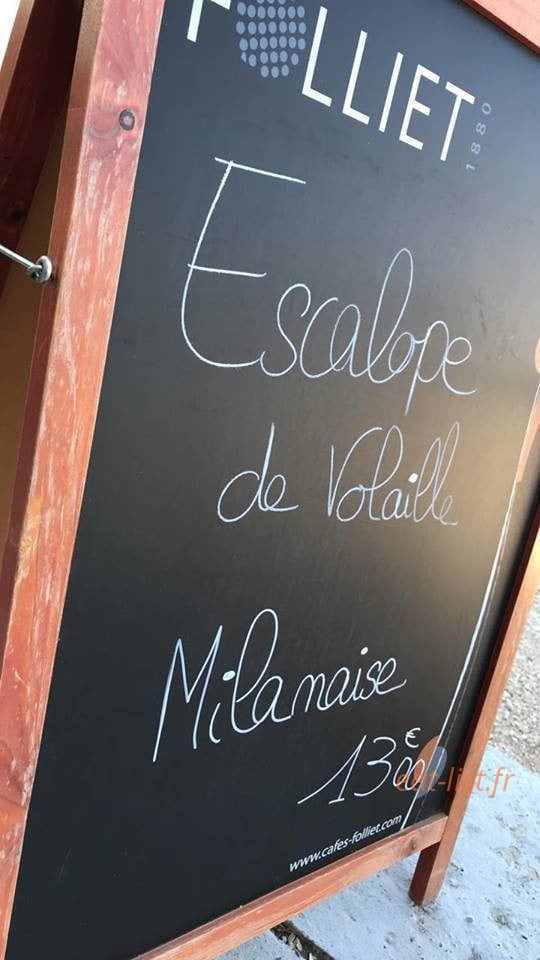 FOLLIET
1880
Escalope
de Volaille
Milanaise
13€00
eat-list.fr
www.cafes-folliet.com